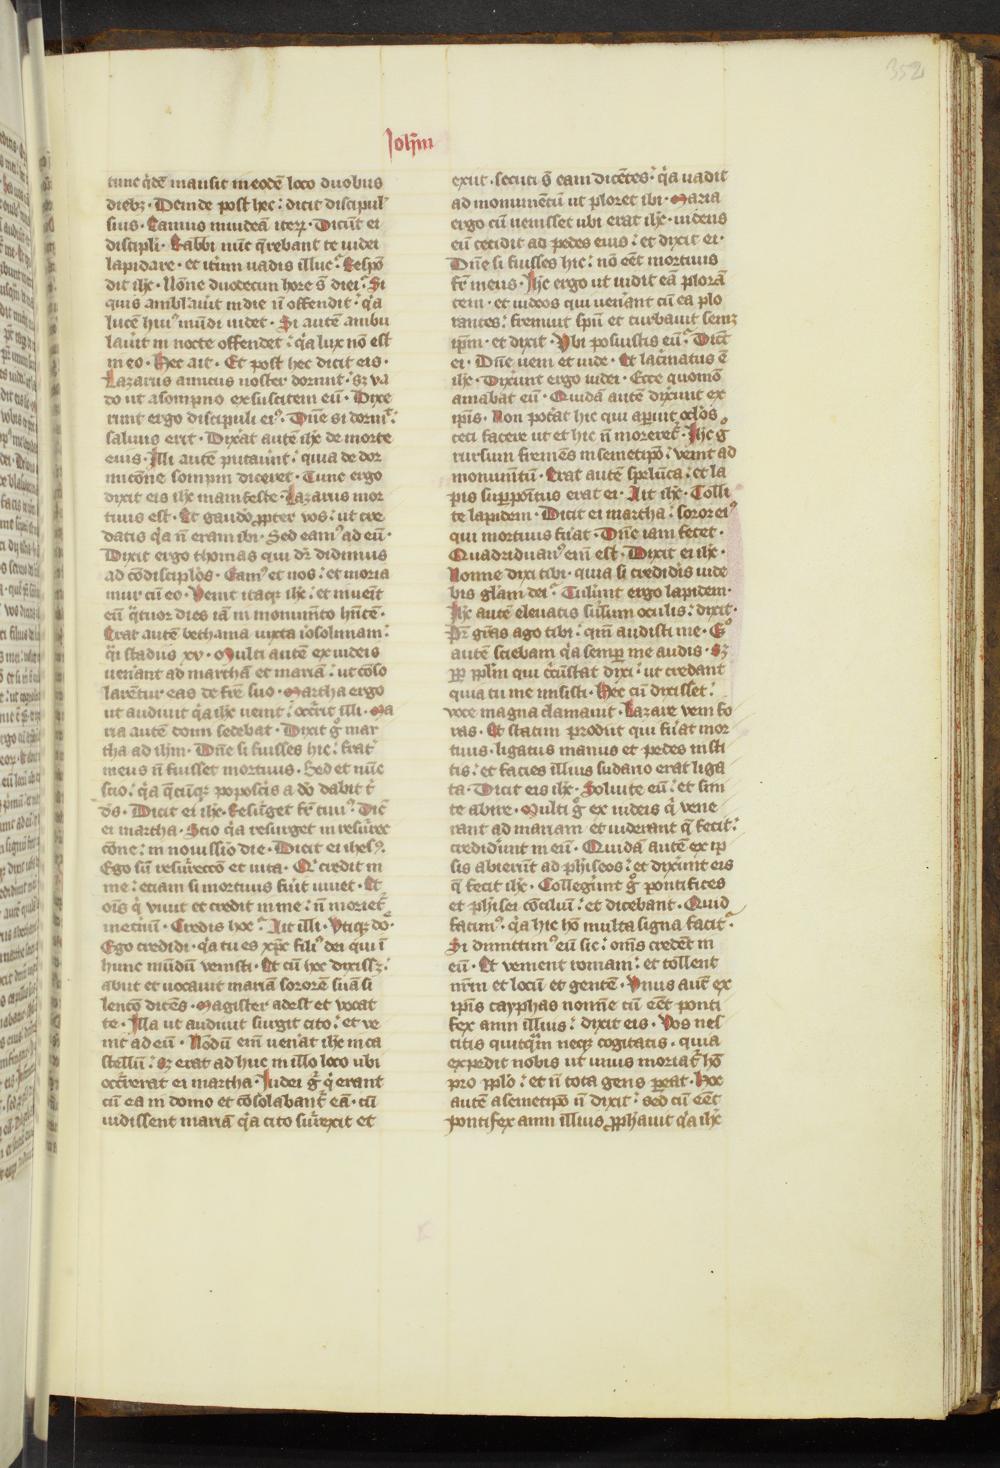 352
Ioh̄m
tunc q̇dē mansit in eodē loco duobus
diebꝫ · Deinde post hec : dicit discipul'
suis · Eamus in iudeā iterꝝ · Dicūt ei
discipli · Rabbi nūc q̄rebant te iudei
lapidare · et itꝛum uadis illuc : Respō
dit ihc · Nōne duodecim hore s̄ diei : Si
quis amblau̇it in die n̄ offendit : q̇a
lucē hui' mūdi uidet · Si autē ambu
lau̇it in nocte offendet : q̇a lux nō est
in eo · Hec ait · Et post hec dicit eis ·
Lazarus amicus noster dormit · sꝫ va
do ut a sompno exsuscitem eū · Dixe
runt ergo discipuli ei' · Dn̄e si dormit :
saluus erit · Dixat autē ihc de morte
eius · Illi autē putau̇nt : quia de dor
mitōne sompni diceret · Tunc ergo
dixit eis ihc manifeste · Lazarus mor
tuus est · Et gaudo ꝓpter vos : ut cre
datis q̇a n̄ eram ibi · Sed eam' ad eū ·
Dixit ergo thomas qui dr̄ didimus
ad cōdisciplos · Eam' et nos : et moria
mur cū eo · Venit itaqꝫ ihc : et inuēit
eū q̇tuor dies iā in monumēto hn̄tē ·
Erat autē bethania iuxta iosolimam :
q̇si stadiis xv · Multi autē ex iudeis
uen̄ant ad marthā et mariā : ut cōso
larētur eas de fr̄e suo · Martha ergo
ut audiuit q̇a ihc uenit : occr̄it illi · Ma
ria autē domi sedebat · Dixit g̊ mar
tha ad ihm · Dn̄e si fuisses hic : frat̄
meus n̄ fuisset mortuus · Sed et nūc
scio : q̇a q̄cūqꝫ poposcis a do dabit t̄
ds · Dicit ei ihc · Resurget fr̄ tuu' · Dic̄
ei martha · Scio q̇a resurget in resurrec
tōne : in nouissīo die · Dicit ei ihesꝰ ·
Ego sū resurreccō et uita · Q' credit in
me : etiam si mortuus fu̇it uiuet · Et
oīs q̇ viuit et credit in me : n̄ moriet̄
in et̄nū · Credis hoc : Ait illi · Vtiqꝫ do ·
Ego credidi · q̇a tu es xp̄c fili' dei qui ī
hunc mūdū venisti · Et cū hec dixissꝫ :
abiit et uocauit mariā sororē suā si
lentō dicēs · Magister adest et vocat
te · Illa ut audiuit surgit cito : et ve
nit ad eū · Nōdū em̄ uen̄at ihc in ca
stellū : sꝫ erat ad huc in illo loco ubi
occr̄erat ei martha · Iudei g̊ q̇ erant
cū ea in domo et cōsolabant̄ eā · cū
uidissent mariā q̇a cito surrexit et
exiit · secuti s̄ eam dicētes : q̇a uadit
ad monumētū ut ploret ibi · Maria
ergo cū uenisset ubi erat ihc · uidens
eū cecidit ad pedes eius : et dixit ei ·
Dn̄e si fuisses hic : nō eēt mortuus
fr̄ meus · Ihc ergo ut uidit eā plorā
tem · et iudeos qui uen̄ant cū ea plo
rantes : fremuit spū et turbauit semꝫ
ip̄m · et dixit · Vbi posuistis eū : Dicūt
ei · Dn̄e ueni et uide · Et lac̓matus ē
ihc · Dixūnt ergo iudei · Ecce quomō
amabat eū · Quidā autē dixūnt ex
ip̄is · Non pot̄at hic qui apuit oclos
ceci facere ut et hic n̄ moreret̄ · Ihc g̊
rursum fremēs in semetip̄o : venit ad
monumt̄ū · Erat autē spelūca : et la
pis suꝑpo̓itus erat ei · Ait ihc · Tolli
te lapidem · Dicit ei martha : soror ei'
qui mortuus fu̇at · Dn̄e iam fetet ·
Quadriduan' em̄ est · Dixit ei ihc ·
Nonne dixi tibi · quia si credidis uide
bis glām dei : Tulūnt ergo lapidem ·
Ihc autē eleuatis sursum oculis : dixit ·
Pr̄ grās ago tibi : qm̄ audisti me · Eº
autē sciebam q̇a semꝑ me audis · Sꝫ
ꝓꝑ pplm̄ qui circūstat dixi : ut credant
quia tu me misisti · Hec cū dixisset :
voce magna clamauit · Lazare veni fo
ras · Et statim prodiit qui fu̇at mor
tuus · ligatus manus et pedes insti
tis : et facies illius sudario erat liga
ta · Dicit eis ihc · Soluite eū : et sini
te abire · Multi g̊ ex iudeis q̇ vene
rant ad mariam et uiderant q̄ fecit :
credidūnt in eū · Quidā autē ex ip
sis abierūt ad phiseos : et dixūnt eis
q̄ fecit ihc · Collegūnt g̊ pontifices
et phisei cōciliū : et dicebant · Quid
facim' · q̇a hic hō multa signa facit :
Si dimittim' eū sic : omīs credēt in
eū · Et venient romani : et tollent
nr̄m et locū et gentē · Vnus aut̄ ex
ip̄is cayphas nomīe cū eēt ponti
fex anni illius : dixit eis · Vos nes
citis quitq̇m necqꝫ cogitatis · quia
expedit nobis ut unus moriat̄ hō
pro pplo : et n̄ tota gens peat · Hoc
autē a semetip̄o n̄ dixit : sed cū eēt
pontifex anni illius ꝓphauit q̇a ihc